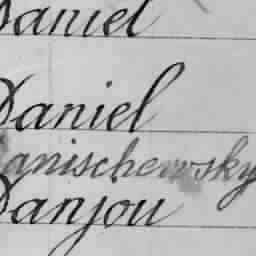 Daniel
Daniel
Danischewsky
Danjou